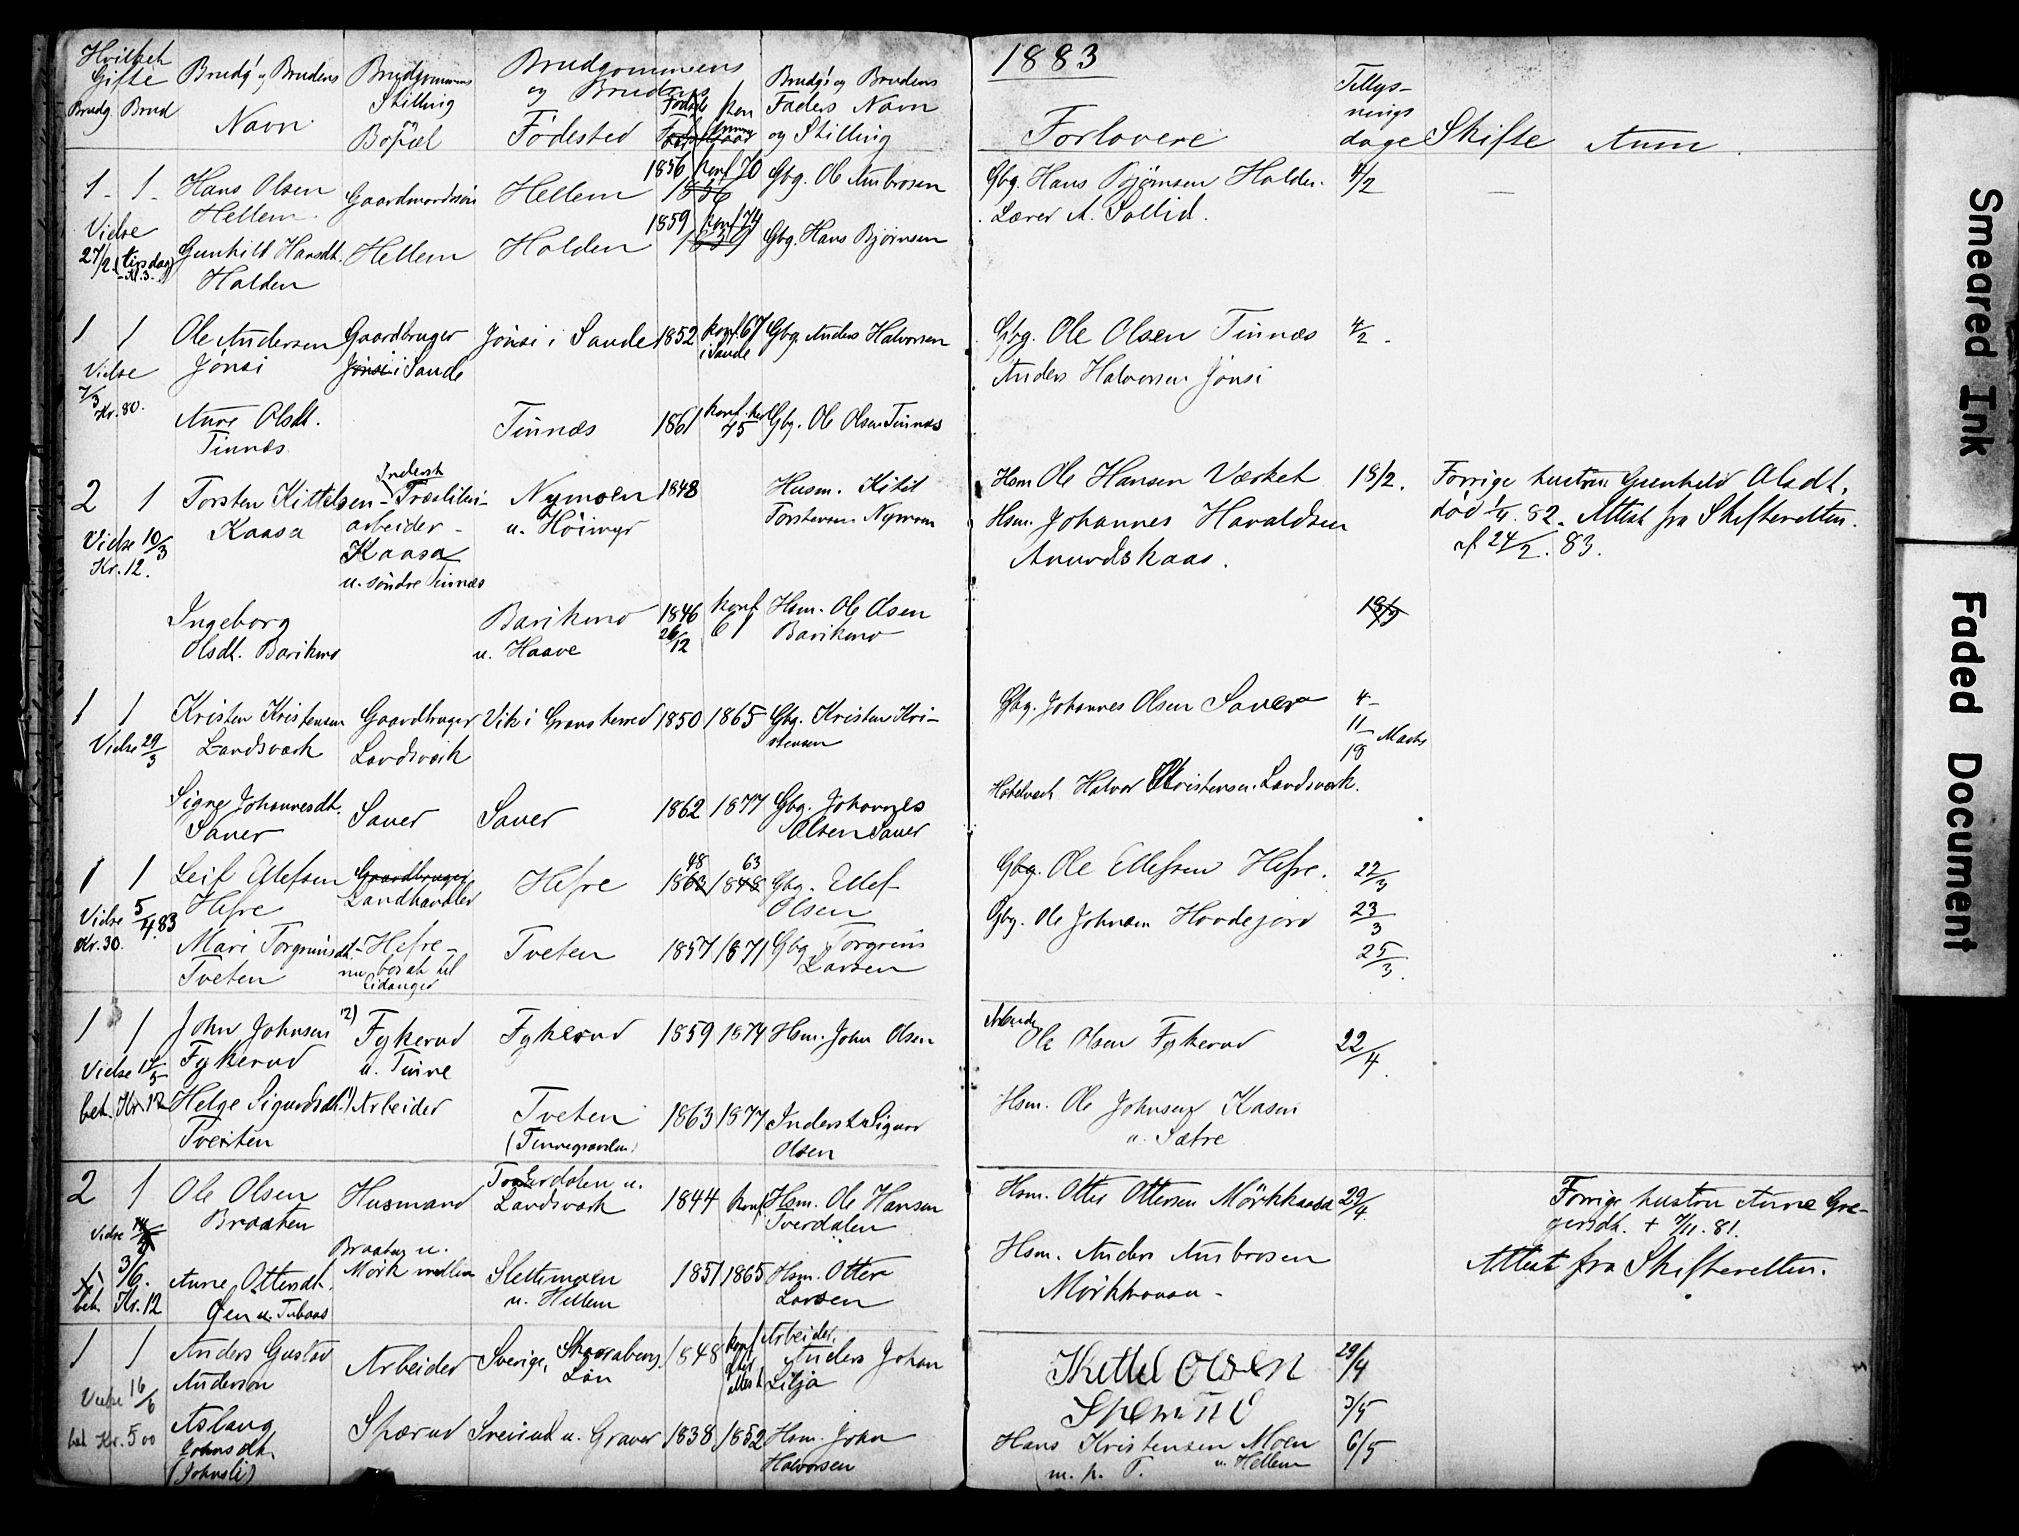 Hvilket
Gifte
Brudg. Brud
Brudg. og Brudens
Navn
Brudgommens
Stilling
og
Bopæl
Brudgommens
og Brudens
Fødested
Brudg's og Brudens
Faders Navn
og Stilling
1883
Forlovere
Tillys-
nings
dage
Skifte
Anm.
1 - 1 -
Vielse
27/2 (tirsdag)
Kl. 3.
Hans Olsen
Hellem.
Gaardmandssøn
Hellem
1856 konf 70
1856
Gbg. Ole Ambrosen
Gbg. Hans Bjørnsen Halden.
Lærer A. Sollid.
4/2
Gunhild Hansdt.
Halden
Hellem
Halden
1859 konf 74
1859
Gbg. Hans Bjørnsen
1 1
Vielse
7/3
Kr. 80.
Ole Andersen
Jønsi
Gaardbruger
Jønsi i Sande
Jønsi i Sande
1852
konf. 67
i Sande
Gbg. Anders Halvorsen
Gbg. Ole Olsen Tinnæs
Anders Halvorsen Jønsi
4/2 -
Anne Olsdt.
Tinnæs
Tinnæs
1861
konf. her
75
Gbg. Ole Olsen Tinnæs
2 1
Vielse 10/3
Kr. 12.
Torsten Kittelsen
Kaasa
Inderst
- Træsliberi-
arbeider -
Kaasa
u. søndre Tinnæs
Nymoen
u. Høimyr
1848
Husm. Kitil
Torstensen Nymoen
Hsm. Ole Hansen Værket
Hsm. Johannes Haraldsen
Anundskaas.
18/2.
Forrige hustru Gunhild Olsdt.
død 82. Attest fra Skifteretten.
af 24/2. 83.
Ingeborg
Olsdt. Barikmo
Barikmo
u. Haave
1846
26/12
konf
61
Hsm. Ole Olsen
Barikmo
18/3
1 1
Vielse 29/3
Kristen Kristensen
Landsværk
Gaardbruger
Landsværk
Vik i Gransherred
1850
1865
Gbg. Kristen Kri-
stensen
Gbg. Johannes Olsen Sauer
4 -
11 - Marts
18
Signe Johannesdt.
Sauer
Sauer
Sauer
1862
1877
Gbg. Johannes
Olsen Sauer
Halvor Kristensen Landsværk.
1 1
Vielse 5/4 83
Kr. 30.
Leif Ellefsen
Hefre
Gaardbruger
Landhandler
Hefre
48
1863
63
1848
Gbg. Ellef
Olsen
Gbg. Ole Ellefsen Hefre.
Gbg. Ole Johnsen Hovdejord
22/3
23/3
25/3.
Mari Torgrimsdt.
Tveten
- Hefre -
nu bosat til
Eidanger
Tveten
1857
1871
Gbg. Torgrim
Larsen
1 1
Vielse
bet. Kr. 12
John Johnsen
Fykerud
2)
Fykerud
u. Tinne
Fykerud
1859
1874
Hsm. John Olsen
Arbeider
Ole Olsen Fykerud
22/4.
Helge Sigurdsdt.
Tveiten
1) Arbeider
Tveten
(Tinnegrænden)
1863
1877
Inderst Sigurd
Olsen
Hsm. Ole Johnsen Kasin
u. Sætre
2 1
Vielse
3/6.
bet. Kr. 12
Ole Olsen
Braaten
Husmand
Tverdalen u.
Landsværk
1844
konf
Hsm. Ole Hansen
Tverdalen
Hsm. Otter Ottersen Mørkkaasa
29/4.
Forrige hustru Anne Gre-
gersdt. + 7/11. 81.
Attest fra Skifteretten.
Anne Ottersdt.
Gen u. Tubaas
Braaten u.
Mørk mellem
Slettemoen
u. Hellem
1851
1865
Hsm. Otter
Larsen
Hsm. Anders Ambrosen
Mørkkaasa -
1 1
Vielse 16/6
bet. Kr. 5 00
Anders Gustav
Anderson
Arbeider
Sverige, Skaraborg
Län
1848
konf
attest
Arbeider.
Anders Johan
Lilja
Kettel Olsen
Sperud
29/4
3/5
Aslaug
Johnsdt.
(Johnsli)
Spærud
Sveirud u. Graver
1838
1852
Hsm. John
Halvorsen
Hans Kristensen Moen
m. p. P. u Hellem
6/5
Smeared Ink
Faded Document